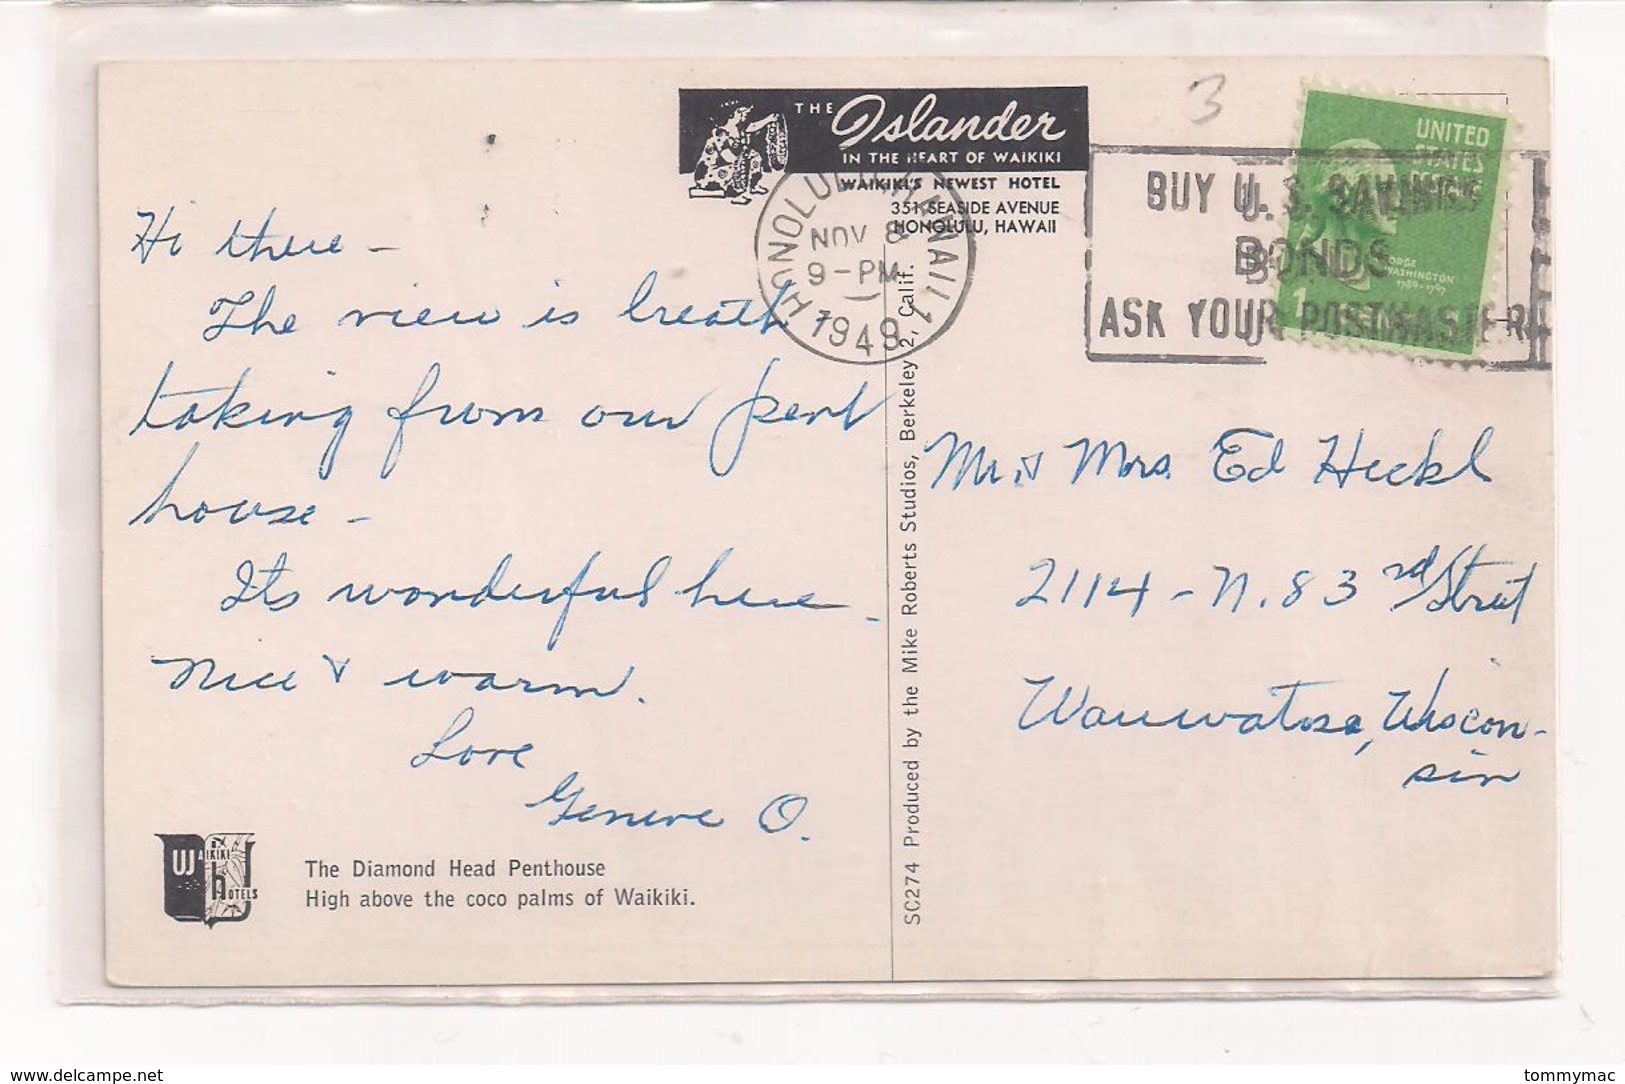 3
THE Islander
IN THE HEART OF WAIKIKI
WAIKIKI'S NEWEST HOTEL
351 SEASIDE AVENUE
HONOLULU, HAWAII
HONOLULU, HAWAII 1
NOV 8
9-PM
1949
BUY U. S. SAVINGS
BONDS
ASK YOUR POSTMASTER
UNITED
STATES
GEORGE
WASHINGTON
1789-1797
1 CENT
Hi there -
The view is breath
taking from our pent
house -
Its wonderful here -
Nice & warm.
Love
Geneve O.
Mr. & Mrs. Ed Heckl
2114 - N. 83rd Street
Wauwatosa, Wiscon-
sin
WAIKIKI
HOTELS
The Diamond Head Penthouse
High above the coco palms of Waikiki.
SC274 Produced by the Mike Roberts Studios, Berkeley 2, Calif.
www.delcampe.net
tommymac